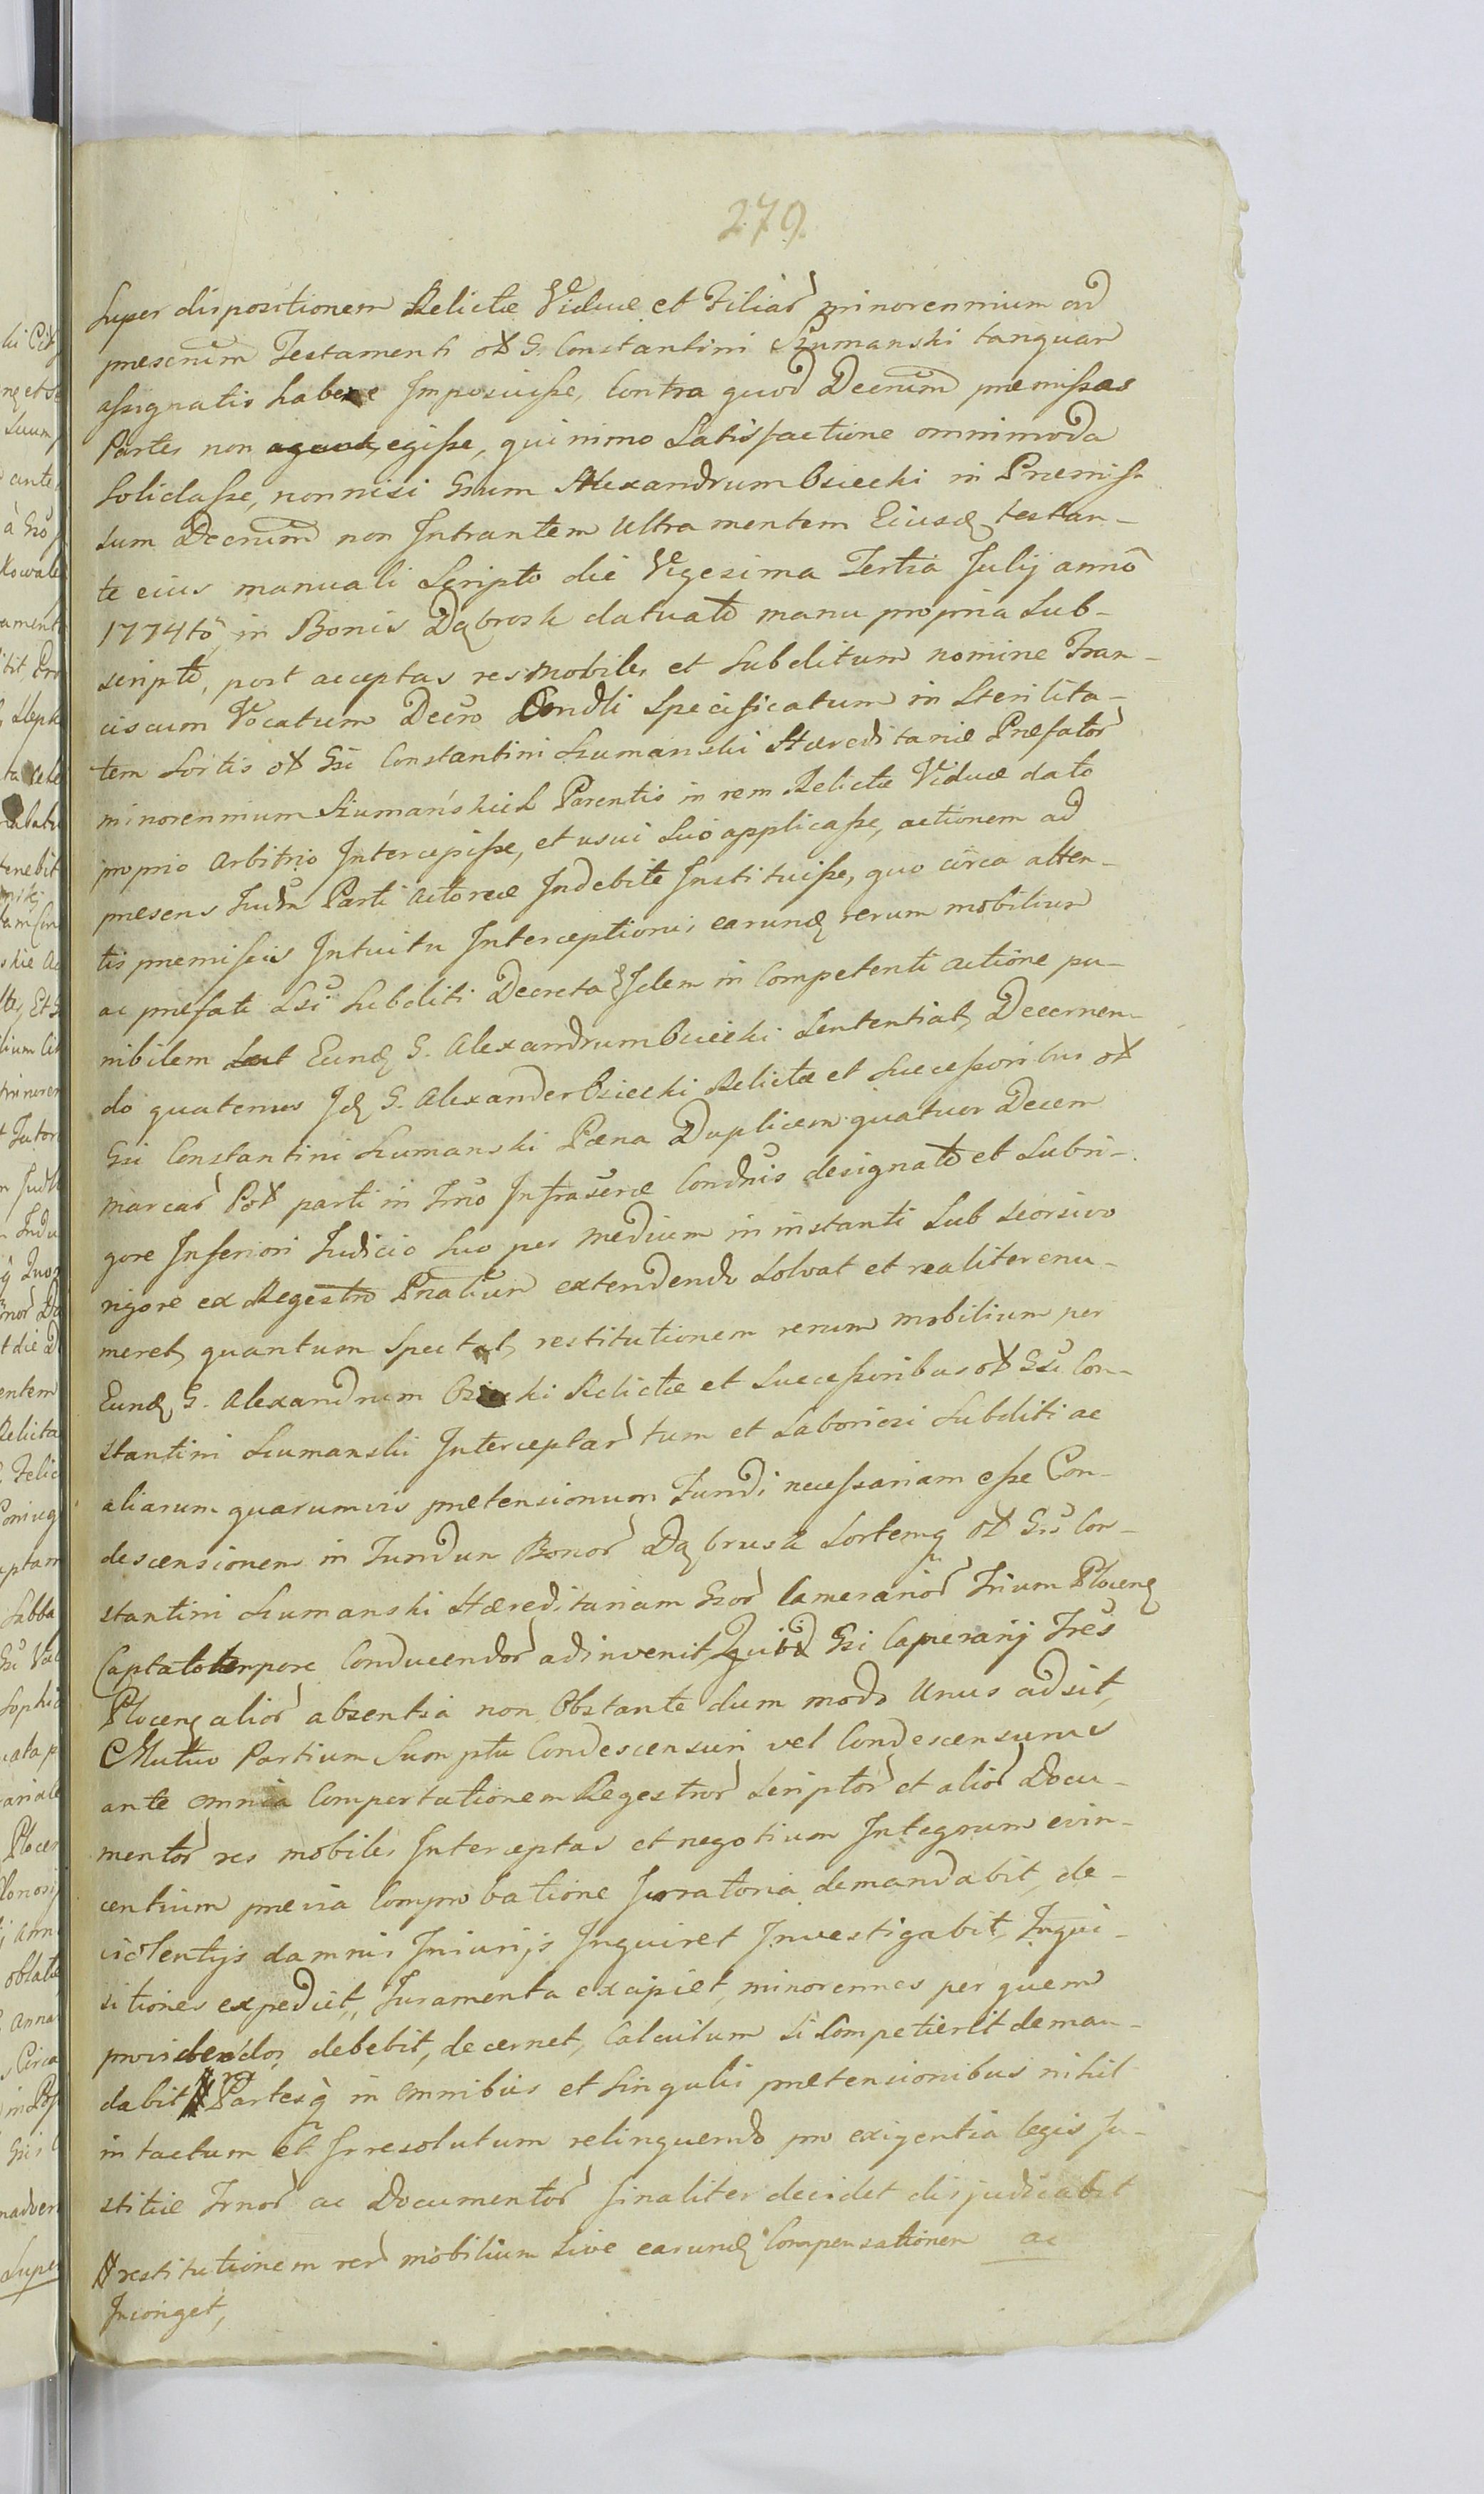 279.
super dispositionem Relictæ Viduæ et Filiar minorennium ad
præsenm Testamenti ol G. Constantini Szumanski tanquam
assignatis habere Imposuisse, Contra quod Decrum præmissas
Partes non egisse, quinimo Satisfactione omnimoda
solidasse, nonnisi Gsum Alexandrum Osiecki in Præmis-
sum Decrum non Intrantem Ultra mentem Eiusd testan-
te eius manuali Scripto die Vigesima Tertia Julij anno
1774to in Bonis Dąbrosk datuato manu propria sub-
scripto, post acceptas res mobiles et subditum nomine Fran-
ciscum Vocatum Decro Condli Specificatum in Sterilita-
tem Sortis ol Gsi Constantini Szumanski Hæreditariæ Præfator
minorennium Szumańskich Parentis in rem Relictæ Viduæ dato
proprio arbitrio Intercepisse, et usui suo applicasse, actionem ad
præsens Judm Parti actoreæ Indebite Instituisse, quo circa atten-
tis præmissis Intuitu Interceptionis earund rerum mobilium
ac præfati Lsi subditi Decreta Idem in Competenti actione pu-
nibilem Eund G. Alexandrum Osiecki Sententiat, Decernen-
do quatenus Id G. Alexander Osiecki Relictæ et Successoribus ol
Gsi Constantini Szumanski Pæna Duplicem quatuor Decem
marcar Pol parti in Trno Infrascræ Condnis designato et subri-
gore Inferiori Judicio suo per medium in instanti sub seorsivo
rigore ex Regestro Pnalium extendendo solvat et realiter enu-
meret, quantum spectat, restitutionem rerum mobilium per
Eund G. Alexandrum Osiecki Relictæ et Successoribus ol Gsi Con-
stantini Szumanski Interceptar tum et Laboriosi subditi ac
aliarum quarumvis prætensionum Fundi necessariam esse Con-
descensionem in Fundum Bonor Dąbrusk Sortemq ol Gsi Con-
stantini Szumanski Hæreditariam Gsor Camerarior Trium Plocen
Captato tempore Conducendor adinvenit, Quibd Gsi Camerarij Tres
Plocen alior absentia non Obstante dum modo Unus adsit,
Mutuo Partium Sumptu Condescensuri vel Condescensurus
ante omnia Comportationem Regestror Scriptor et alior Docu-
mentor res mobiles Interceptas et negotium Integrum evin-
centium prævia Comprobatione Juratoria demandabit, de-
violentijs damnis Iniurijs Inquiret Investigabit, Inqui-
sitiones expediet, Juramenta excipiet, minorennes per quem
providendos debebit, decernet, Calculum si Competierit deman-
dabit # Partesq in omnibus et singulis prætensionibus nihil
intactum et Irresolutum relinquendo pro exigentia legis Ju-
stitiæ Trnor ac Documentor finaliter decidet disjudicabit
# restitutionem rer mobilium sive earund Compensationem ac
Injunget,